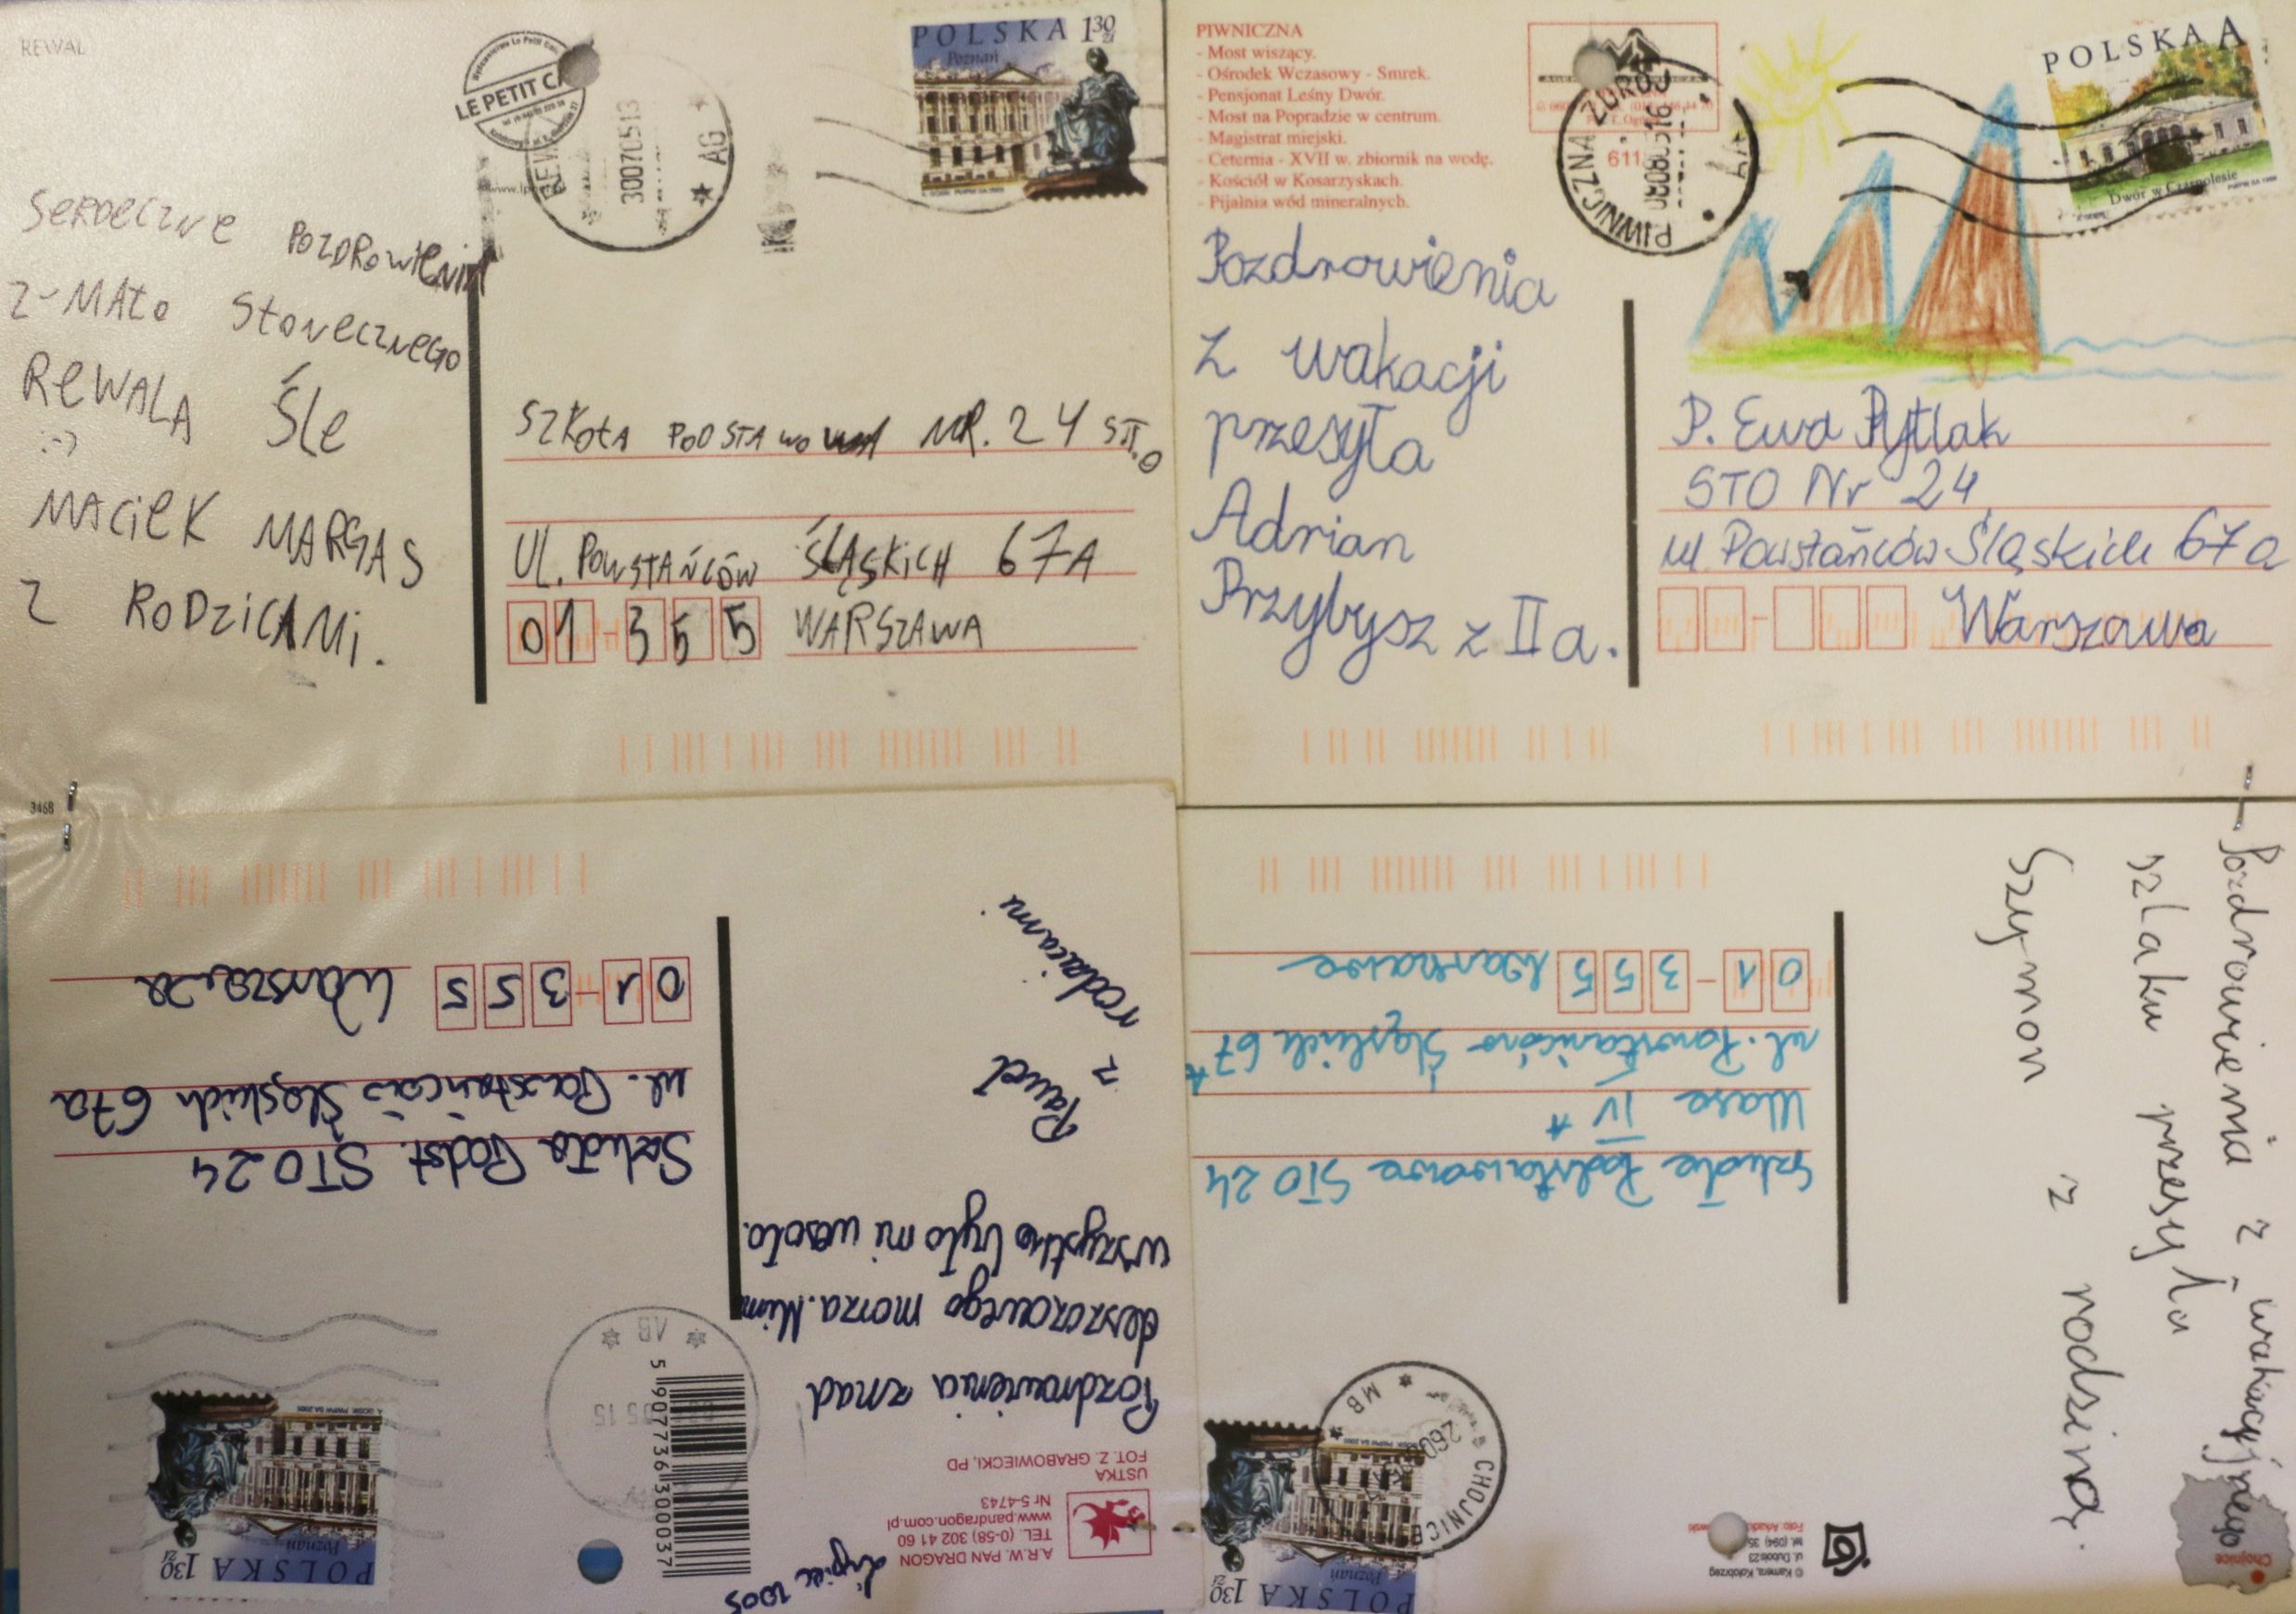 REWAL
LE PETIT
300705 13
AG
POLSKA 130 zł
Poznań
SERDECZNE POZDROWIENIA
Z-MAŁO SŁONECZNEGO
REWALA ŚLE
:-)
MACIEK MARGAS
Z RODZICAMI.
SZKOŁA PODSTAWOWA NR. 24 ST.O
UL. POWSTAŃCÓW ŚLĄSKICH 67A
01-355 WARSZAWA
3468
PIWNICZNA
- Most wiszący.
- Ośrodek Wczasowy - Smrek.
- Pensjonat Leśny Dwór.
- Most na Popradzie w centrum.
- Magistrat miejski.
- Ceternia - XVII w. zbiornik na wodę.
- Kościół w Kosarzyskach.
- Pijalnia wód mineralnych.
PIWNICZNA ZDRÓJ
POLSKA A
Dwór w Czarnolesie
Pozdrowienia
z wakacji
przesyła
Adrian
Przybysz z II a.
P. Ewa Pytlak
STO Nr 24
ul Powstańców Śląskich 67a
Warszawa
A.R.W. PAN DRAGON
TEL. (0-58) 302 41 60
www.pandragon.com.pl
Nr 5-4743
USTKA
FOT. Z. GRABOWIECKI, PD
lipiec 2005
Pozdrowienia znad
deszczowego morza. Mimo
wszystko było mi wesoło.
Paweł
z
rodzicami.
5 907736 300037
AB
POLSKA 130 zł
Poznań
Szkoła Podst. STO 24
ul. Powstańców Śląskich 67a
01-355 Warszawa
Pozdrowienia z wakacyjnego
szlaku przesyła
Szymon z rodziną.
Chojnice
© Kamera, Kołobrzeg
ul. Dubois 23
CHOJNICE
MB
POLSKA 130 zł
Poznań
Szkoła Podstawowa STO 24
klasa IV A
ul. Powstańców Śląskich 67A
01-355 Warszawa